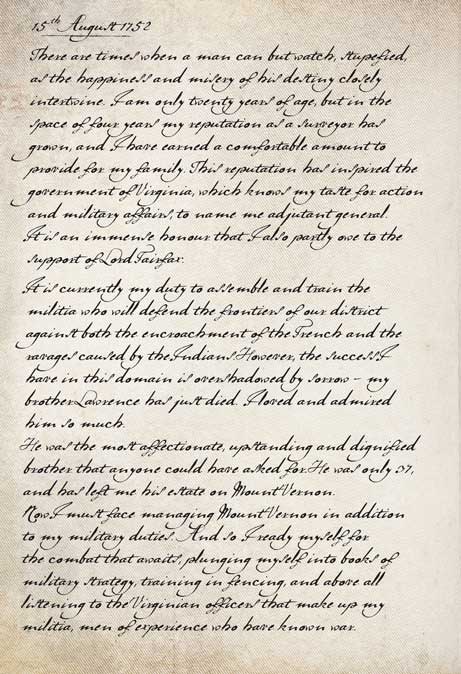 15th August 1752
There are times when a man can but watch, stupefied,
as the happiness and misery of his destiny closely
intertwine. I am only twenty years of age, but in the
space of four years my reputation as a surveyor has
grown, and I have earned a comfortable amount to
provide for my family. This reputation has inspired the
government of Virginia, which knows my taste for action
and military affairs, to name me adjutant general.
It is an immense honour that I also partly owe to the
support of Lord Fairfax.
It is currently my duty to assemble and train the
militia who will defend the frontiers of our district
against both the encroachment of the French and the
ravages caused by the Indians. However, the success I
have in this domain is overshadowed by sorrow – my
brother Lawrence has just died. I loved and admired
him so much.
He was the most affectionate, upstanding and dignified
brother that anyone could have asked for. He was only 37,
and has left me his estate on Mount Vernon.
Now I must face managing Mount Vernon in addition
to my military duties. And so I ready myself for
the combat that awaits, plunging myself into books of
military strategy, training in fencing, and above all
listening to the Virginian officers that make up my
militia, men of experience who have known war.